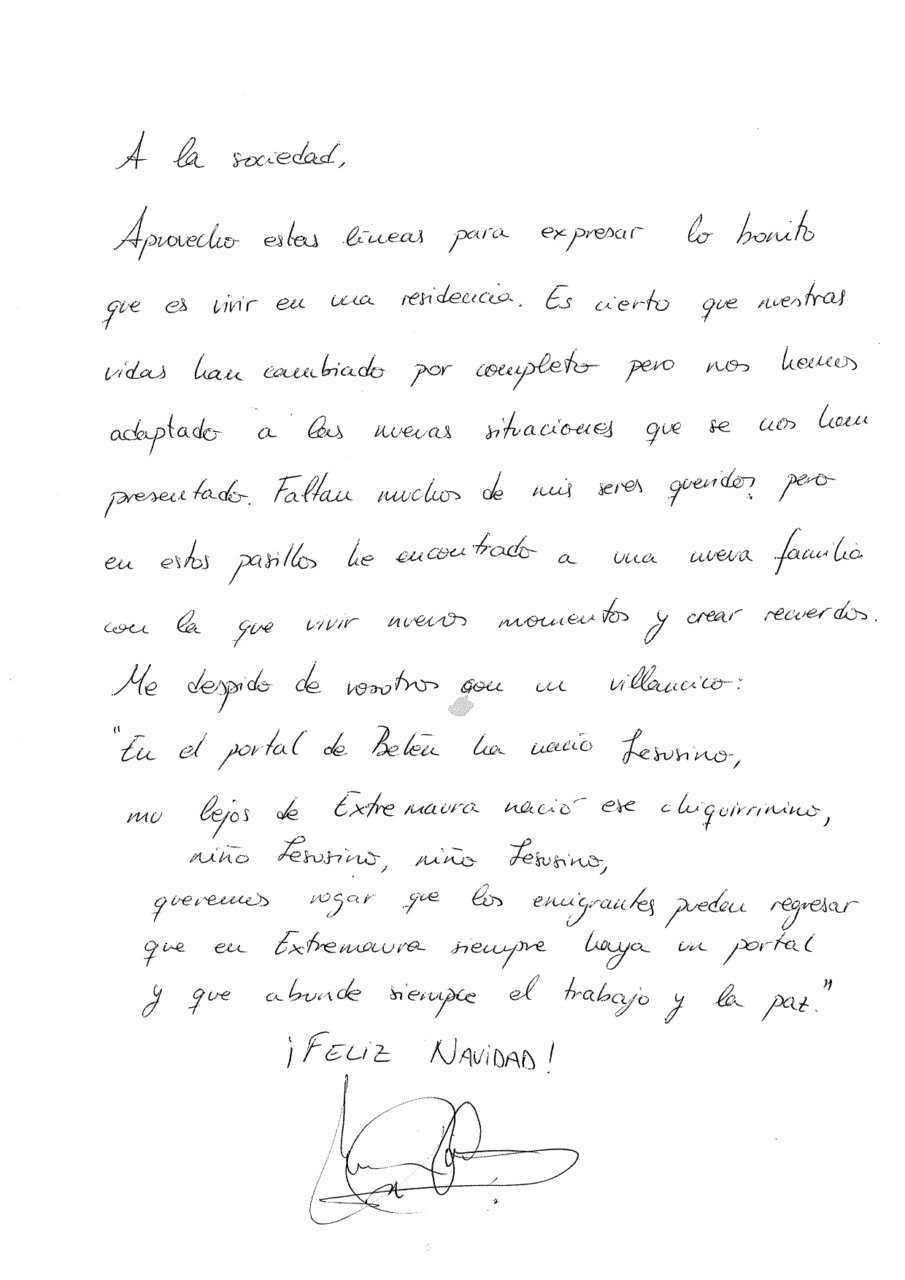 A la sociedad,
Aprovecho estas líneas para expresar lo bonito
que es vivir en una residencia. Es cierto que nuestras
vidas han cambiado por completo pero nos hemos
adaptado a las nuevas situaciones que se nos han
presentado. Faltan muchos de mis seres queridos, pero
en estos pasillos he encontrado a una nueva familia
con la que vivir nuevos momentos y crear recuerdos.
Me despido de vosotros con un villancico:
"En el portal de Belén ha nacío Jesusino,
mu lejos de Extremaura nació ese chiquirrinino,
niño Jesusino, niño Jesusino,
queremos rogar que los emigrantes puedan regresar
que en Extremaura siempre haya un portal
y que abunde siempre el trabajo y la paz."
¡FELIZ NAVIDAD!